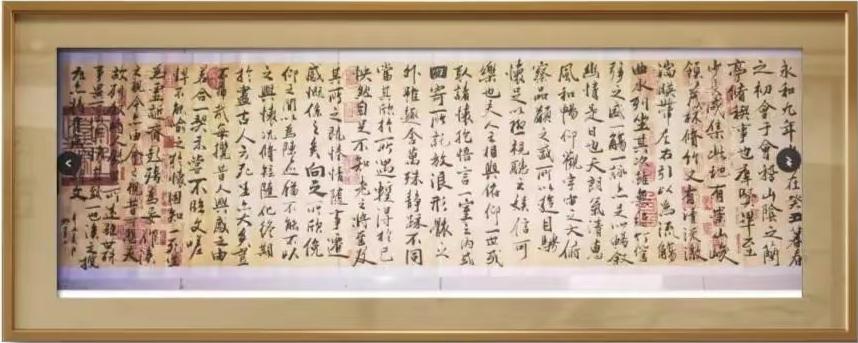 永和九年在癸丑暮春
之初會于會稽山陰之蘭
亭脩稧事也群賢畢至
少長咸集此地有崇山峻
領茂林脩竹又有清流激
湍暎帶左右引以為流觴
曲水列坐其次雖無絲竹管
弦之盛一觴一詠亦足以暢敘
幽情是日也天朗氣清惠
風和暢仰觀宇宙之大俯
察品類之盛所以遊目騁
懷足以極視聽之娛信可
樂也夫人之相與俯仰一世或
取諸懷抱悟言一室之內或
因寄所託放浪形骸之
外雖趣舍萬殊靜躁不同
當其欣於所遇蹔得於己
怏然自足不知老之將至及
其所之既惓情隨事遷
感慨係之矣向之所欣俛
仰之間以為陳迹猶不能不以
之興懷況脩短隨化終期
於盡古人云死生亦大矣豈
不痛哉每攬昔人興感之由
若合一契未嘗不臨文嗟
悼不能喻之於懷固知一死生
為虛誕齊彭殤為妄作後
之視今亦由今之視昔悲夫
故列敘時人錄其所述雖世殊
事異所以興懷其致一也後之攬
者亦將有感於斯文